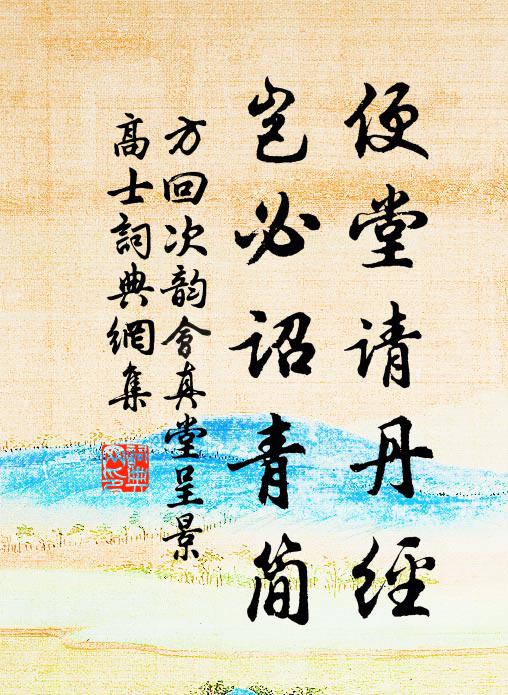 便堂请丹經
岂必诏青简
方回次韵會真堂呈景
髙士詞典網集